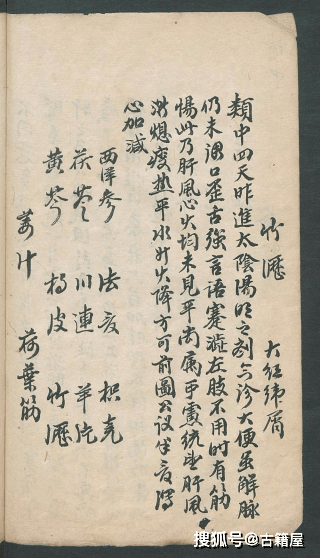 竹瀝　大紅
類中四天昨進太陰陽明之剤今診大便虽解脉
仍未調口歪舌強言語蹇澁左肢不用时有筋
惕此乃肝風心火均未見平尚属統望肝風
漸熄痰熱平水升火降方可前圖公议半夏瀉
心加減
西洋參　法夏　枳壳
茯苓　川連
黄芩　橘皮　竹瀝
姜汁　荷葉筋
搜狐号@古籍屋